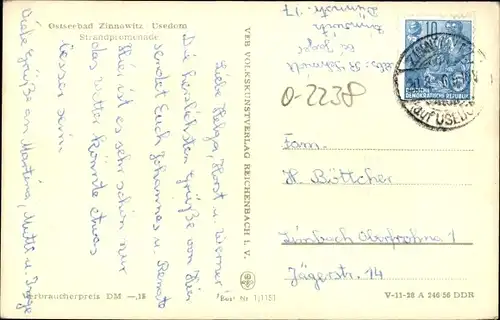 Ostseebad Zinnowitz Usedom
Strandpromenade
Liebe Helga, Horst u. Werner!
Die herzlichsten Grüße von hier
sendet Euch Johannes u. Renate
Hier ist es sehr schön nur
das Wetter könnte etwas
besser sein.
Viele Grüße an Martina, Mutti u. Inge
Verbraucherpreis DM —,15
Best Nr 1/1151
VEB VOLKSKUNSTVERLAG REICHENBACH i. V.
Zinnowitz
O-2238
10
DEUTSCHE
DEMOKRATISCHE REPUBLIK
ZINNOWITZ
auf USEDOM
Fam.
H. Böttcher
Limbach Oberfrohna 1
Jägerstr. 14
V-11-28 A 246-56 DDR